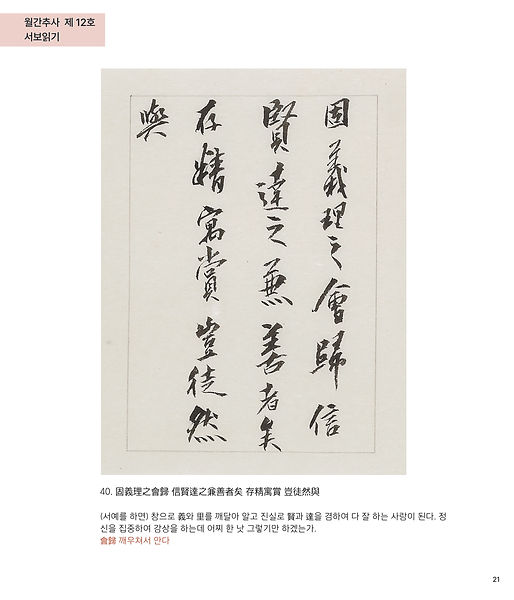 월간추사 제 12호
서보읽기
固義理之會歸信
賢達之兼善者矣
存精寓賞豈徒然
與
40. 固義理之會歸 信賢達之兼善者矣 存精寓賞 豈徒然與
(서예를 하면) 참으로 義와 里를 깨달아 알고 진실로 賢과 達을 겸하여 다 잘 하는 사람이 된다. 정
신을 집중하여 감상을 하는데 어찌 한 낫 그렇기만 하겠는가.
會歸 깨우쳐서 안다
21